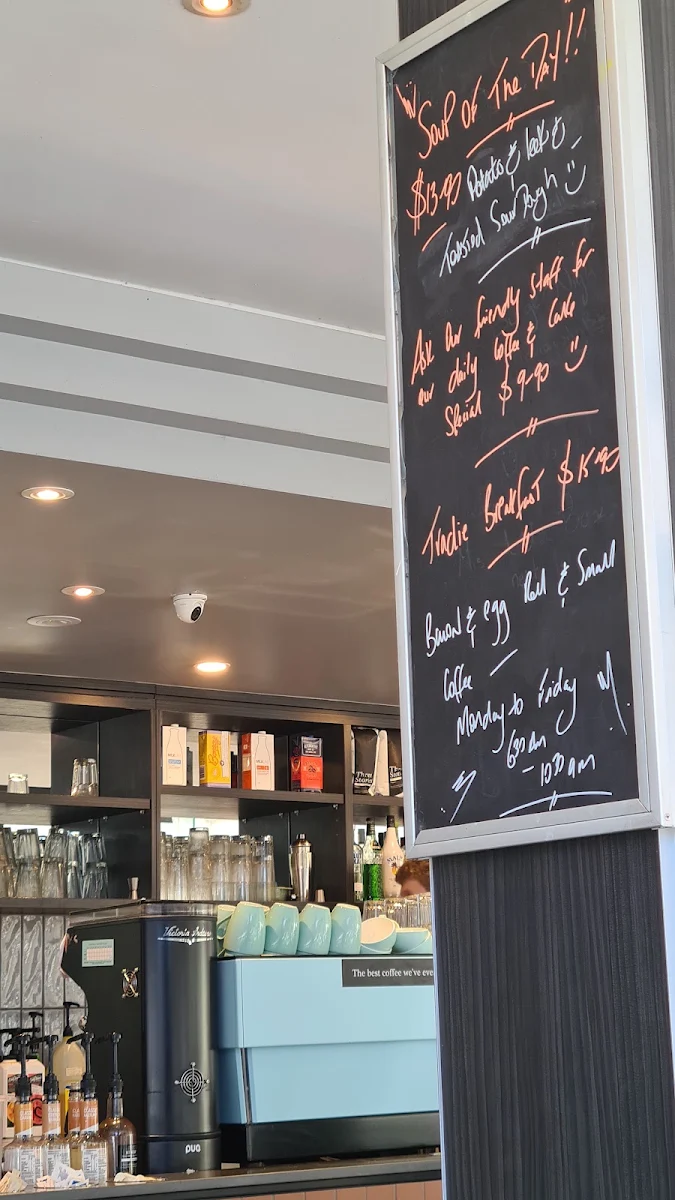 Soup Of The Day!!
$13.90 Potato & leek &
Toasted Sour Dough
Ask our friendly staff for
our daily Coffee & Cake
Special $9.90
Tradie Breakfast $15.90
Bacon & egg Roll & Small
Coffee
Monday to Friday
6:30 am
- 10:30 am
Victoria Arduino
The best coffee we've eve
puq